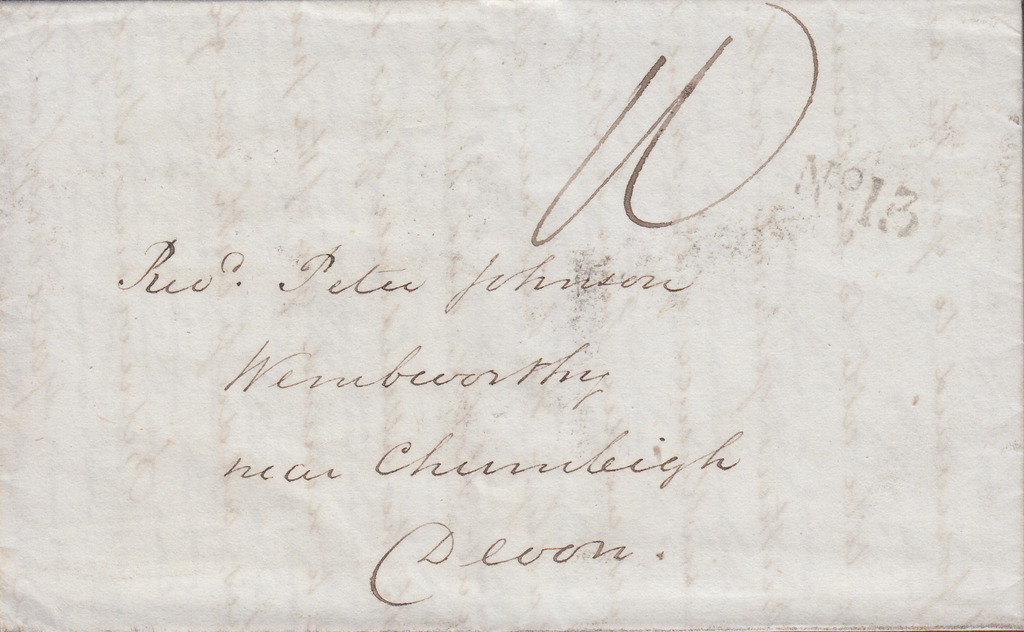 No. 13
Revd. Peter Johnson
Wembworthy
near Chumleigh
Devon.